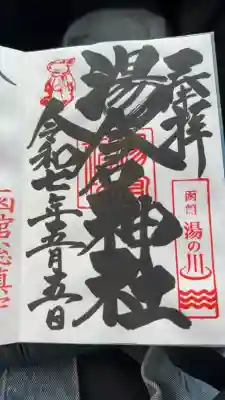 奉拝
函館
湯の川
湯倉神社
令和七年五月五日
函館総鎮守